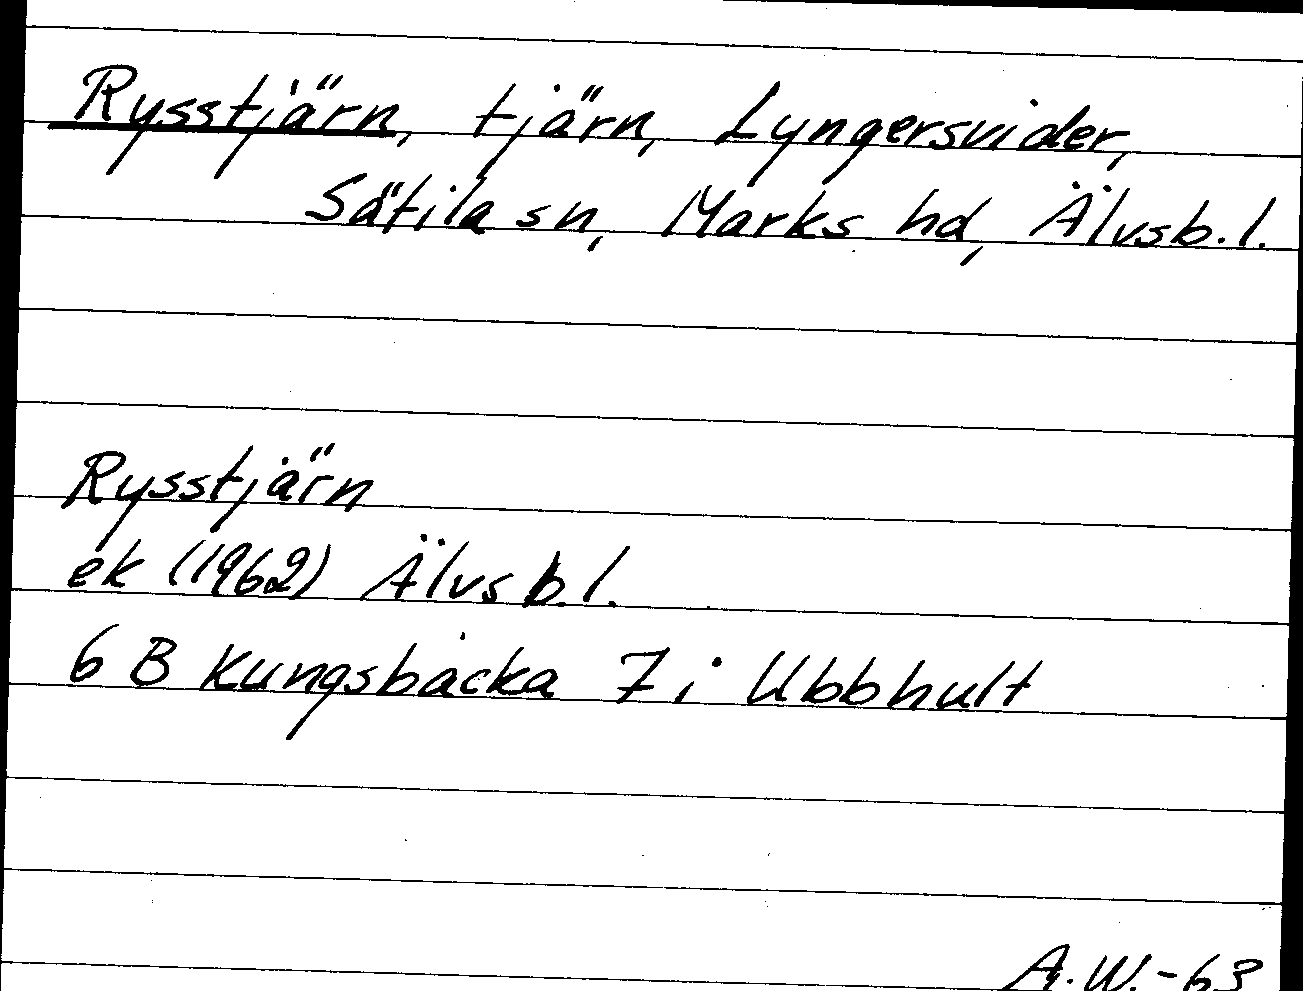 Rysstjärn, tjärn, Lyngersvider,
Sätila sn, Marks hd, Älvsb.l.
Rysstjärn
ek (1962) Älvsb.l.
6 B Kungsbacka 7 i Ubbhult
A.W.-63